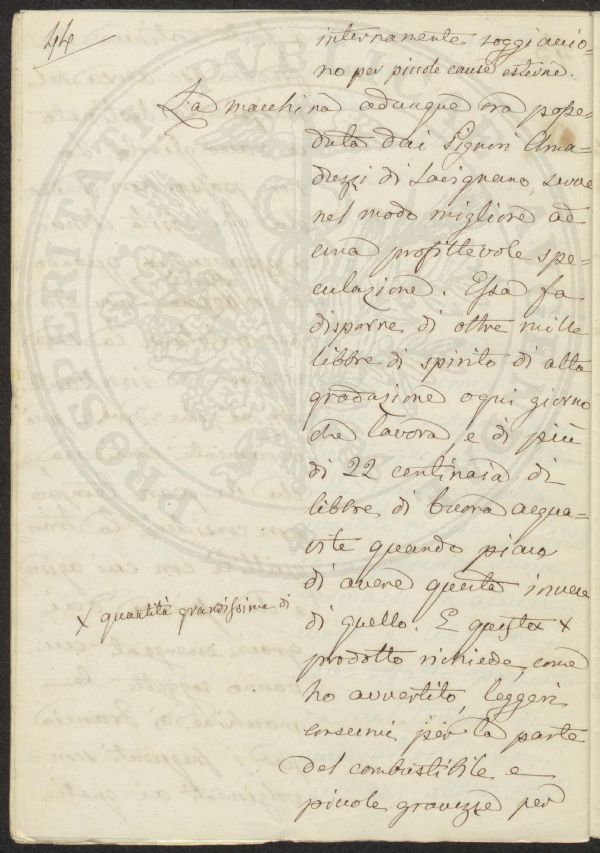 44
internamente soggiacio-
no per piccole cause esterne.
La macchina adunque ora posse-
duta dai Signori Ama-
duzzi di Savignano serve
nel modo migliore ad
una profittevole spe-
culazione. Essa fa
disporre di oltre mille
libbre di spirito di alta
gradazione ogni giorno
che lavora, e di più
di 22 centinaia di
libbre di buona acqua-
vite quando piace
di avere questa invece
di quello. E questa x
x quantità grandissima di
prodotto richiede, come
ho avvertito, leggeri
consumi per la parte
del combustibile e
piccole gravezze per